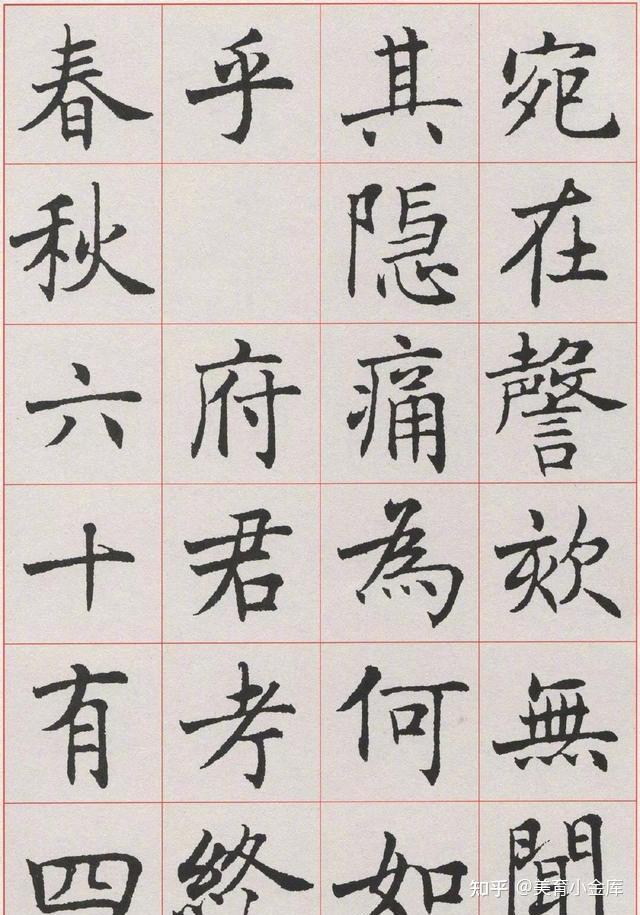 宛在謦欬無聞
其隱痛為何如
乎 府君考終
春秋六十有四
知乎 @美育小金库